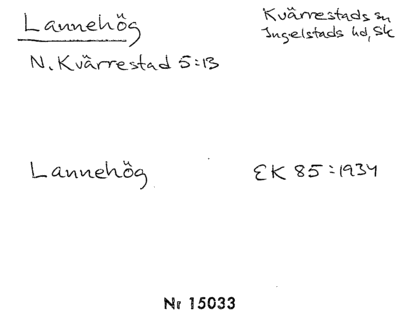 Lannehög
Kvärrestads sn
Ingelstads hd, Sk
N. Kvärrestad 5:13
Lannehög
EK 85:1934
Nr 15033